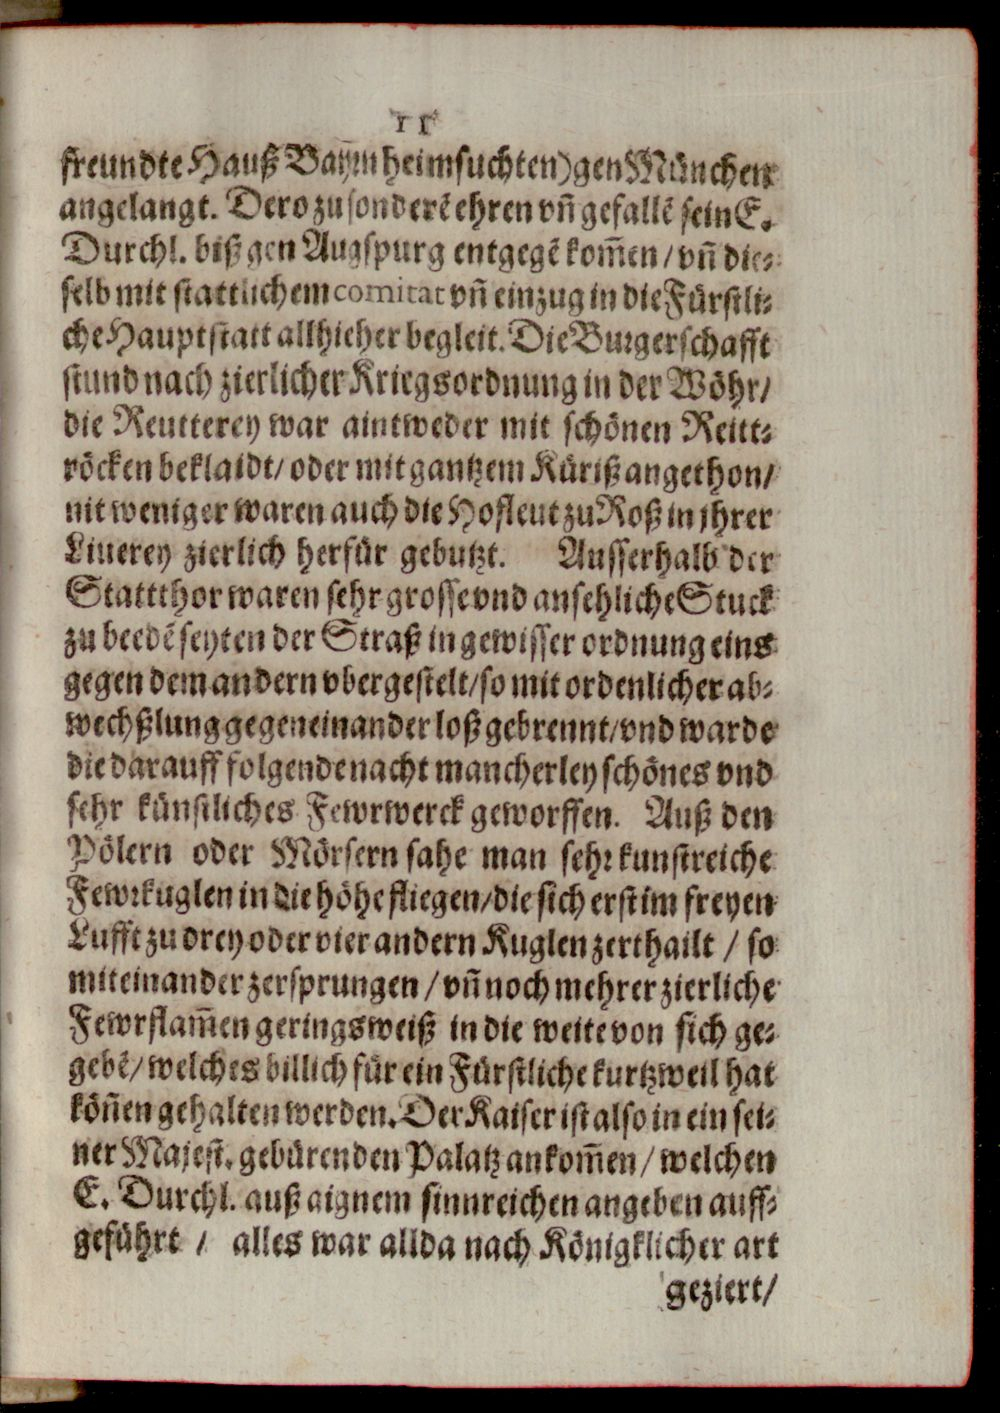 11
freundte Hauß Bayrn heimsuchten) gen München
angelangt. Dero zu sonderẽ ehren vñ gefallẽ sein E.
Durchl. biß gen Augspurg entgegẽ kom̃en / vñ die-
selb mit stattlichem comitat vñ einzug in die Fürstli-
che Hauptstatt allhieher begleit. Die Burgerschafft
stund nach zierlicher Kriegsordnung in der Wöhr /
die Reutterey war aintweder mit schönen Reitt-
röcken beklaidt / oder mit gantzem Küriß angethon /
nit weniger waren auch die Hofleut zu Roß in jhrer
Liuerey zierlich herfür gebutzt. Ausserhalb der
Stattthor waren sehr grosse vnd ansehliche Stuck
zu beedẽ seyten der Straß in gewisser ordnung eins
gegen dem andern vbergestelt / so mit ordenlicher ab-
wechßlung gegeneinander loß gebrennt / vnd warde
die darauff folgende nacht mancherley schönes vnd
sehr künstliches Fewrwerck geworffen. Auß den
Pölern oder Mörsern sahe man sehr kunstreiche
Fewrkuglen in die höhe fliegen / die sich erst im freyen
Lufft zu drey oder vier andern Kuglen zerthailt / so
miteinander zersprungen / vñ noch mehrer zierliche
Fewrflam̃en geringsweiß in die weite von sich ge-
gebẽ / welches billich für ein Fürstliche kurtzweil hat
köñen gehalten werden. Der Kaiser ist also in ein sei-
ner Majest. gebürenden Palatz ankom̃en / welchen
E. Durchl. auß aignem sinnreichen angeben auff-
geführt / alles war allda nach Königklicher art
geziert /